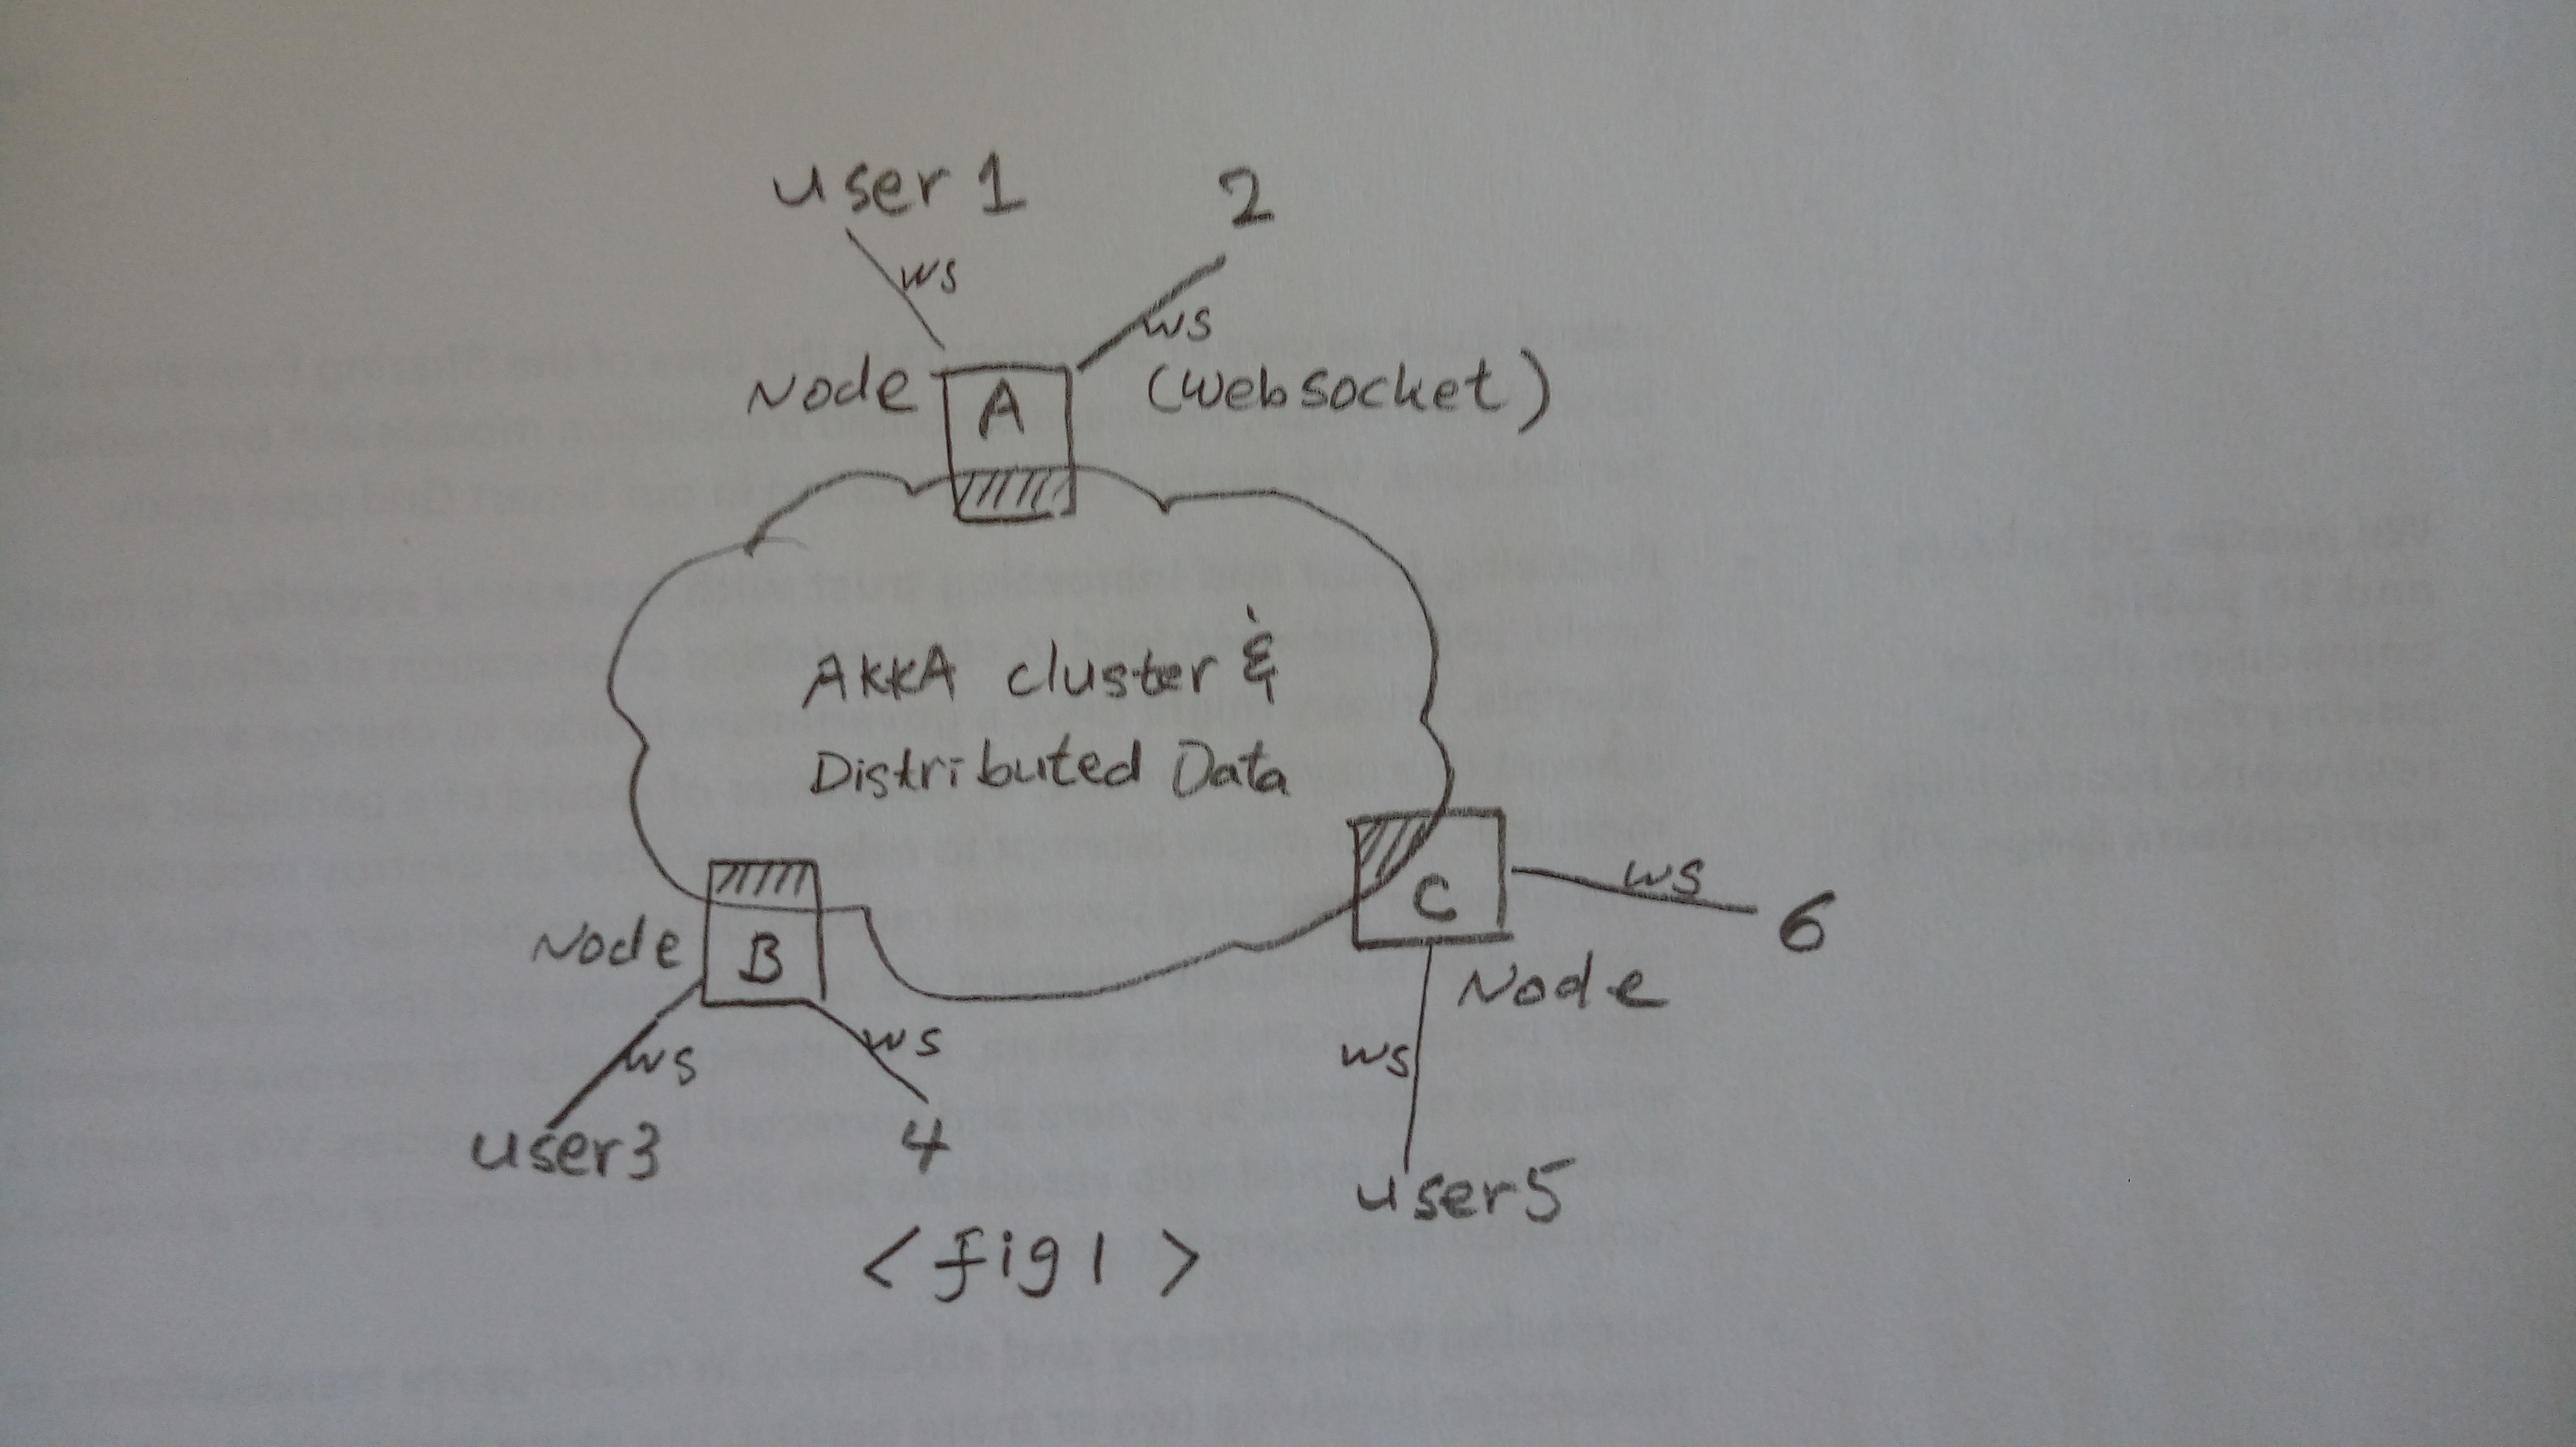 user 1
2
ws
ws
Node
A
(websocket)
AKKA cluster &
Distributed Data
Node
B
C
ws
6
Node
ws
ws
ws
user3
4
user5
< fig 1 >